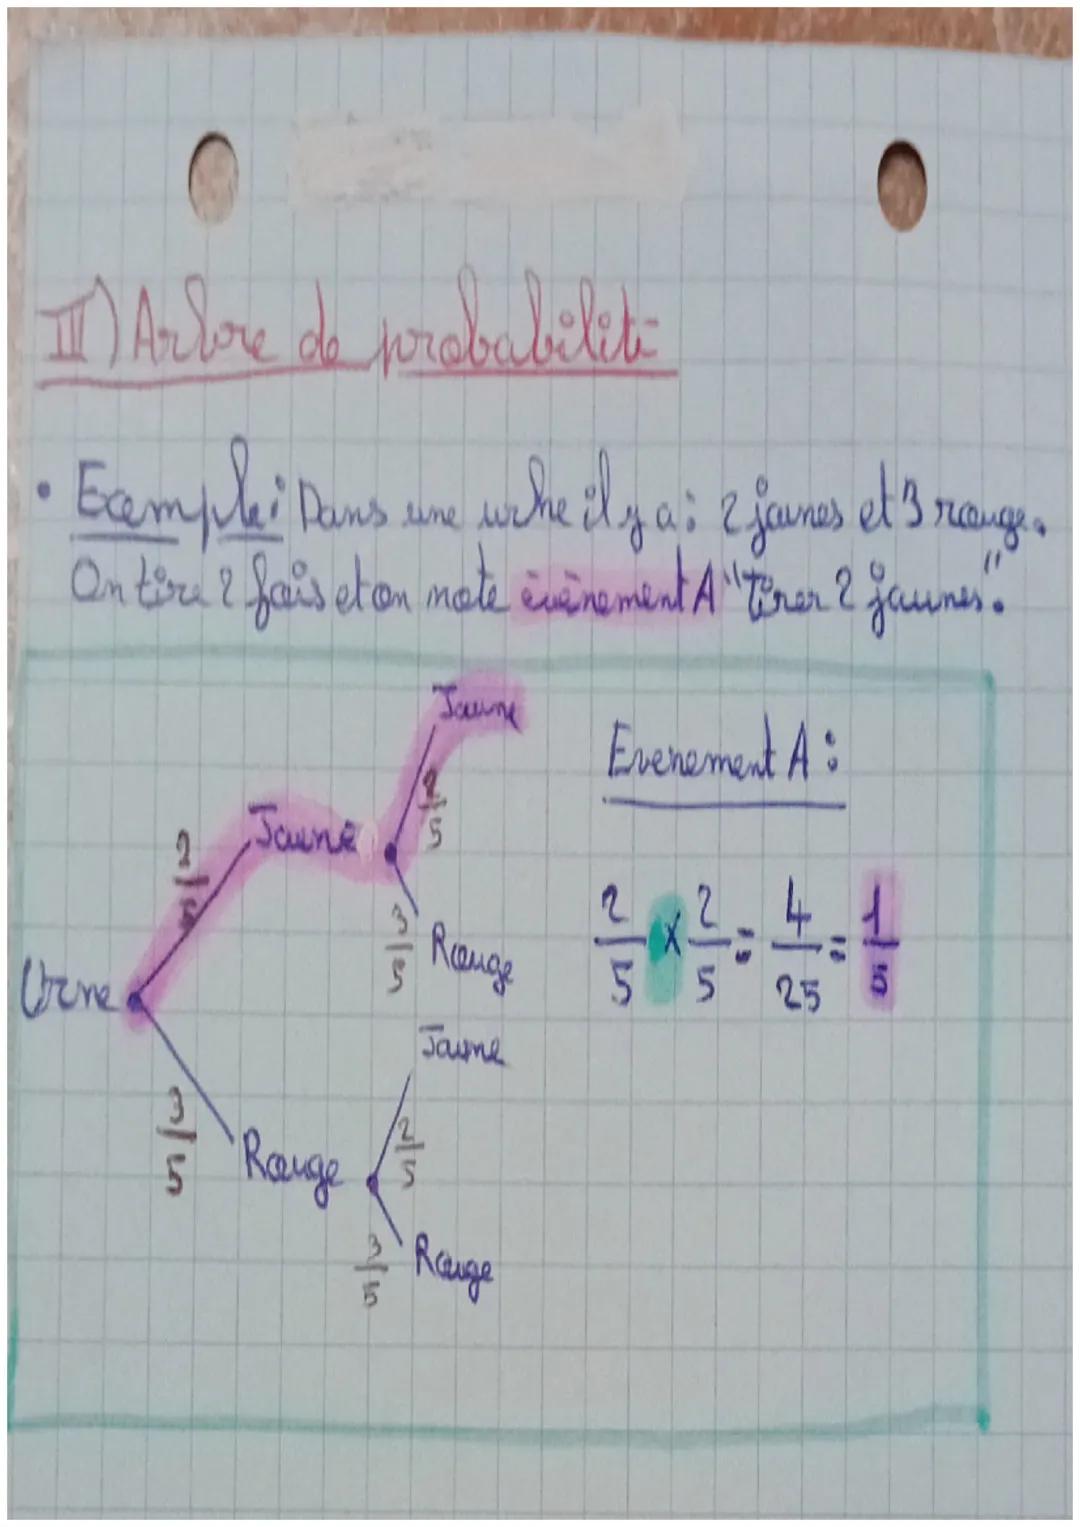 III) Arbre de probabilité
• Exemple: Dans une urne il y a: 2 jaunes et 3 rouge.
On tire 2 fois et on note événement A "Tirer 2 jaunes".
Jaune
2/5
Jaune
2/5
3/5
Rouge
Urne
Jaune
3/5
2/5
Rouge
3/5
Rouge
Evenement A :
2/5 x 2/5 = 4/25 = 1/5